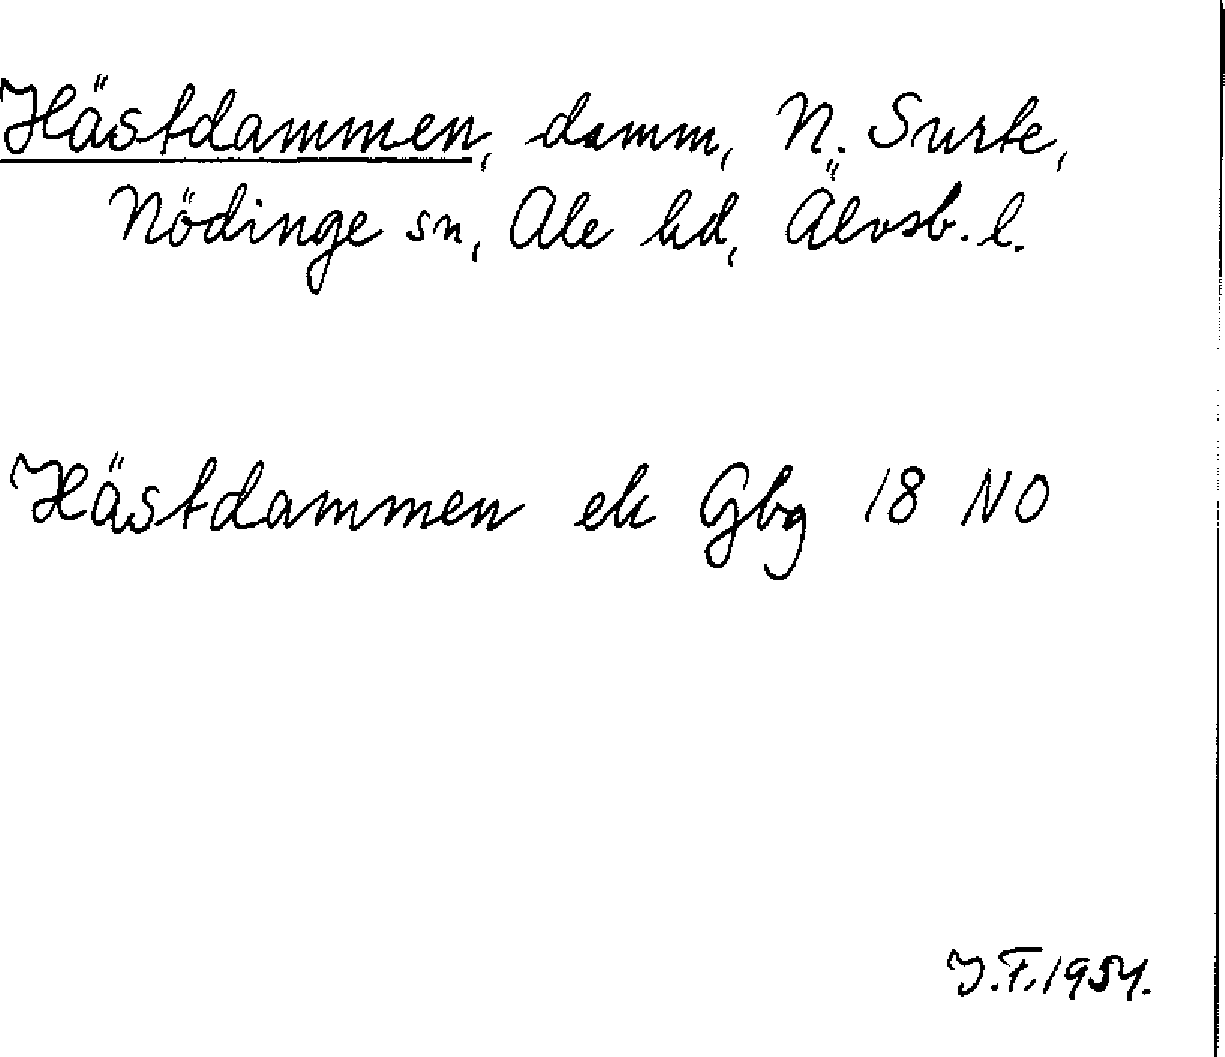 Hästdammen, damm, N. Surte,
Nödinge sn, Ale hd, Älvsb. l.
Hästdammen ek Gbg 18 NO
J.F. 1954.